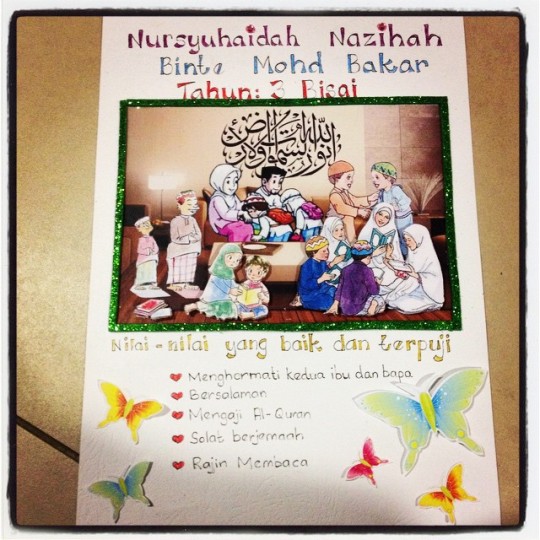 Nursyuhaidah Nazihah
Binte Mohd Bakar
Tahun: 3 Bisai
الله نور السموات والأرض
Nilai-nilai yang baik dan terpuji
Menghormati kedua ibu dan bapa
Bersalaman
Mengaji Al-Quran
Solat berjemaah
Rajin Membaca